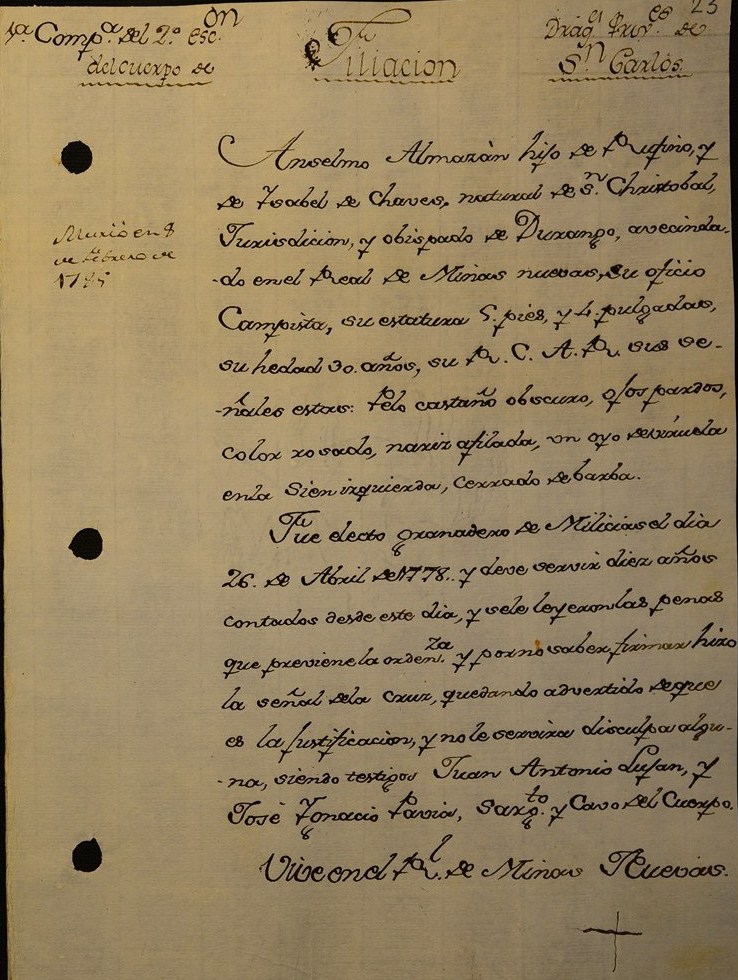 23
1ª. Compª. del 2º. Escon.
del cuerpo de
Filiacion
Dragˢ. Provˢ. de
Sn. Carlos.
Anselmo Almazàn hijo de Rufino, y
de Ysabel de Chaves, natural de Sn. Christobal,
Jurisdicion, y obispado de Durango, avecinda-
-do en el Real de Minas nuevas, su oficio
Campista, su estatura 5. pies, y 4. pulgadas,
su hedad 30. años, su R. C. A. R. sus se-
-ñales estas: Pelo castaño obscuro, ojos pardos,
color rosado, nariz afilada, un oyo de viruela
en la Sien izquierda, cerrado de barba.
Murió en 8
de Febrero de
1785
Fue electo granadero de Milicias el dia
26. de Abril de 1778. y deve servir diez años
contados desde este dia, y se le leyeron las penas
que previene la ordenza. y por no saber firmar hizo
la señal de la Cruz, quedando advertido de que
es la justificacion, y no le servira disculpa algu-
-na, siendo testigos Juan Antonio Lujan, y
José Ygnacio Pavia, Sargto. y Cavo del Cuerpo.
Vive en el Rl. de Minas Nuevas.